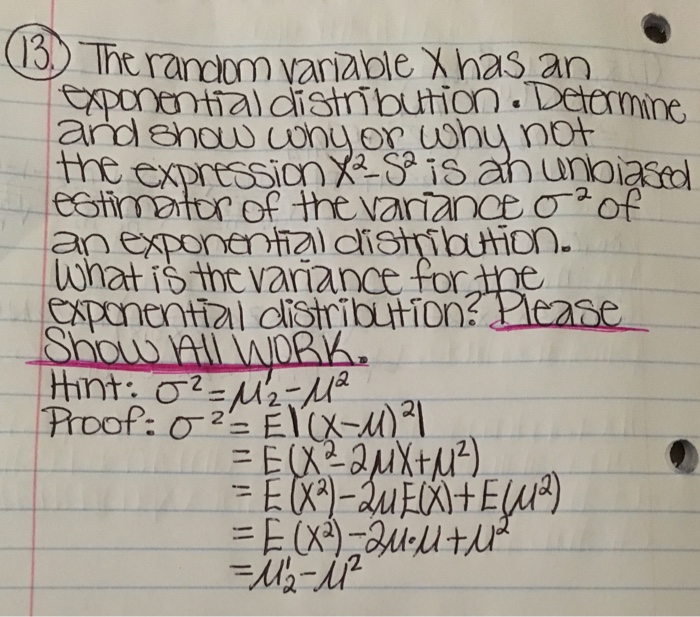 13. The random variable X has an
exponential distribution. Determine
and show why or why not
the expression X²-S² is an unbiased
estimator of the variance σ² of
an exponential distribution.
What is the variance for the
exponential distribution? Please
Show All WORK.
Hint: σ² = μ'₂ - μ²
Proof: σ² = E|(X-μ)²|
= E(X²-2μX+μ²)
= E(X²)-2μE(X)+E(μ²)
= E(X²)-2μ·μ+μ²
= μ'₂-μ²